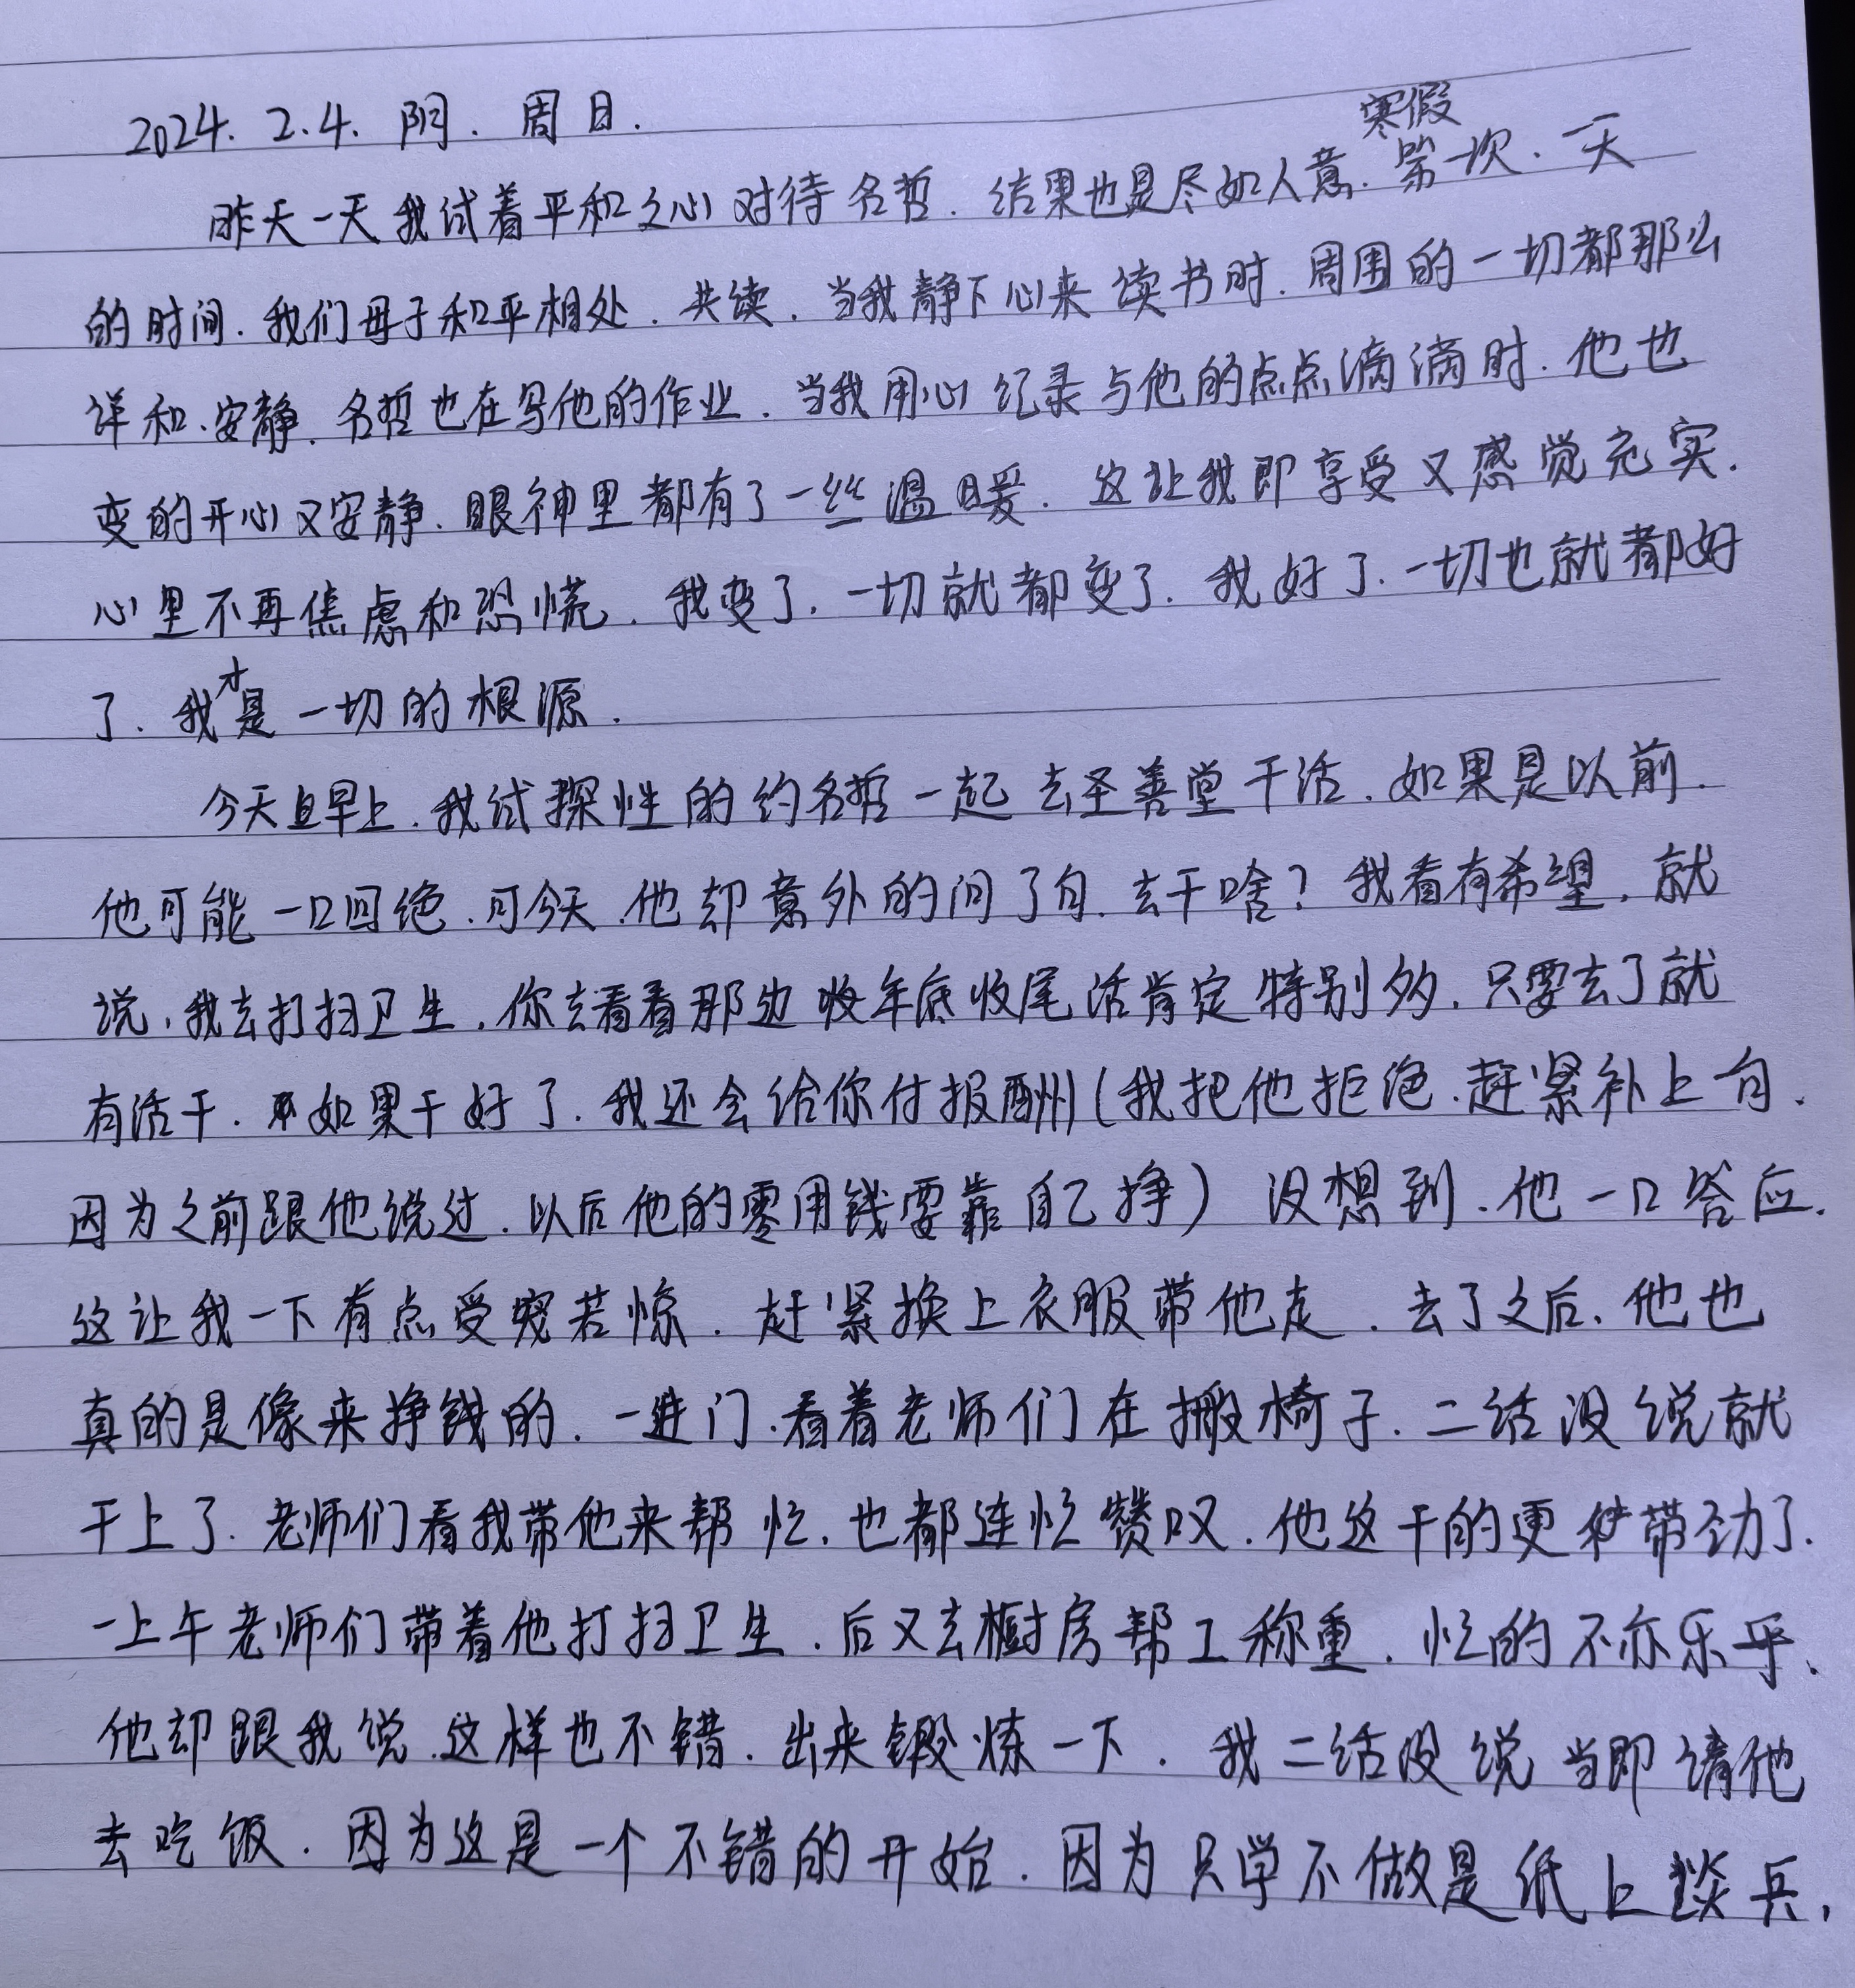 2024. 2.4. 阴. 周日.
昨天一天我试着平和之心对待名哲. 结果也是尽如人意. 寒假第一次. 一天
的时间. 我们母子和平相处. 共读. 当我静下心来读书时. 周围的一切都那么
详和.安静. 名哲也在写他的作业. 当我用心纪录与他的点点滴滴时. 他也
变的开心又安静. 眼神里都有了一丝温暖. 这让我即享受又感觉充实.
心里不再焦虑和恐慌. 我变了. 一切就都变了. 我好了. 一切也就都好
了. 我才是一切的根源.
今天早上. 我试探性的约名哲一起去圣善堂干活. 如果是以前.
他可能一口回绝. 可今天. 他却意外的问了句. 去干啥? 我看有希望. 就
说, 我去打扫卫生. 你去看看那边年底收尾活肯定特别多. 只要去了就
有活干. 如果干好了. 我还会给你付报酬(我把他拒绝. 赶紧补上句.
因为之前跟他说过. 以后他的零用钱要靠自己挣) 没想到. 他一口答应.
这让我一下有点受宠若惊. 赶紧换上衣服带他走. 去了之后. 他也
真的是像来挣钱的. 一进门. 看着老师们在搬椅子. 二话没说就
干上了. 老师们看我带他来帮忙. 也都连忙赞叹. 他这干的更带劲了.
一上午老师们带着他打扫卫生. 后又去橱房帮工称重. 忙的不亦乐乎.
他却跟我说.这样也不错. 出来锻炼一下. 我二话没说当即请他
去吃饭. 因为这是一个不错的开始. 因为只学不做是纸上谈兵,